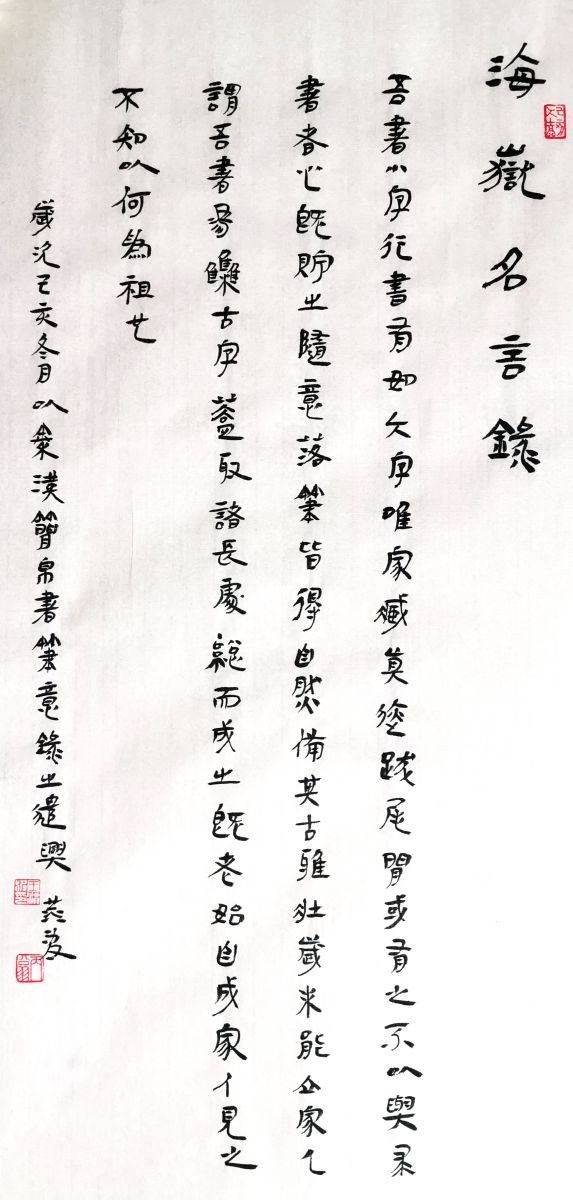 海嶽名言錄
吾書小字行書有如大字唯家藏真迹跋尾間或有之不以與求
書者心既貯之隨意落筆皆得自然備其古雅壯歲未能立家人
謂吾書為集古字蓋取諸長處總而成之既老始自成家人見之
不知以何為祖也
歲次己亥冬月以秦漢簡帛書筆意錄之遣興